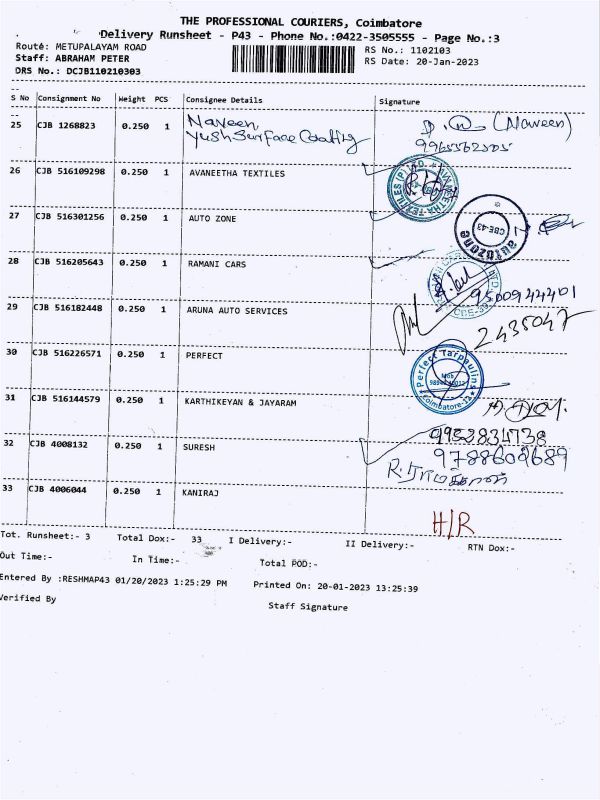 THE PROFESSIONAL COURIERS, Coimbatore
Delivery Runsheet - P43 - Phone No.:0422-3505555 - Page No.:3
Route: METUPALAYAM ROAD
RS No.: 1102103
Staff: ABRAHAM PETER
RS Date: 20-Jan-2023
DRS No.: DCJB110210303
S No Consignment No Weight PCS Consignee Details Signature
25 CJB 1268823 0.250 1 Naveen (Naveen)
Yush Surface Coating
26 CJB 516109298 0.250 1 AVANEETHA TEXTILES
27 CJB 516301256 0.250 1 AUTO ZONE
autozone CBE-43
28 CJB 516205643 0.250 1 RAMANI CARS
9500944401
29 CJB 516182448 0.250 1 ARUNA AUTO SERVICES
2435047
30 CJB 516226571 0.250 1 PERFECT
Perfect Tarpaulin
31 CJB 516144579 0.250 1 KARTHIKEYAN & JAYARAM
9952834738
32 CJB 4008132 0.250 1 SURESH
9788608689
33 CJB 4006044 0.250 1 KANIRAJ
H/R
Tot. Runsheet:- 3 Total Dox:- 33 I Delivery:- II Delivery:- RTN Dox:-
Out Time:- In Time:- Total POD:-
Entered By :RESHMAP43 01/20/2023 1:25:29 PM Printed On: 20-01-2023 13:25:39
Verified By Staff Signature